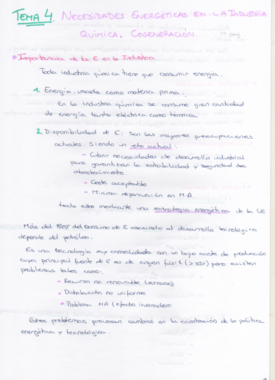 TEMA 4 NECESIDADES ENERGETICAS EN LA INDUSTRIA
QUÍMICA. COGENERACIÓN.
Importancia de la E en la Industria
Toda industria química tiene que consumir energía.
1. Energía, usada como materia prima.
En la industria química se consume gran cantidad
de energía tanto eléctrica como térmica.
2. Disponibilidad de E. Son las mayores preocupaciones
actuales. Siendo un reto actual:
- Cubrir necesidades de desarrollo industrial
para garantizar la estabilidad y seguridad del
abastecimiento
- Coste aceptable
- Mínima repercusión en M.A
todo esto mediante una estrategia energética de la CE
Más del del consumo de E asociado al desarrollo tecnológico
depende del petróleo.
Es una tecnología muy consolidada con un bajo coste de producción
cuya principal fuente de E es de origen fósil y por existen
problemas tales como:
- Recurso no renovable (escaso)
- Distribución no uniforme
- Problema MA (efecto invernadero
Estos problemas, provocan cambios en la orientación de la política
energética y tecnológica.